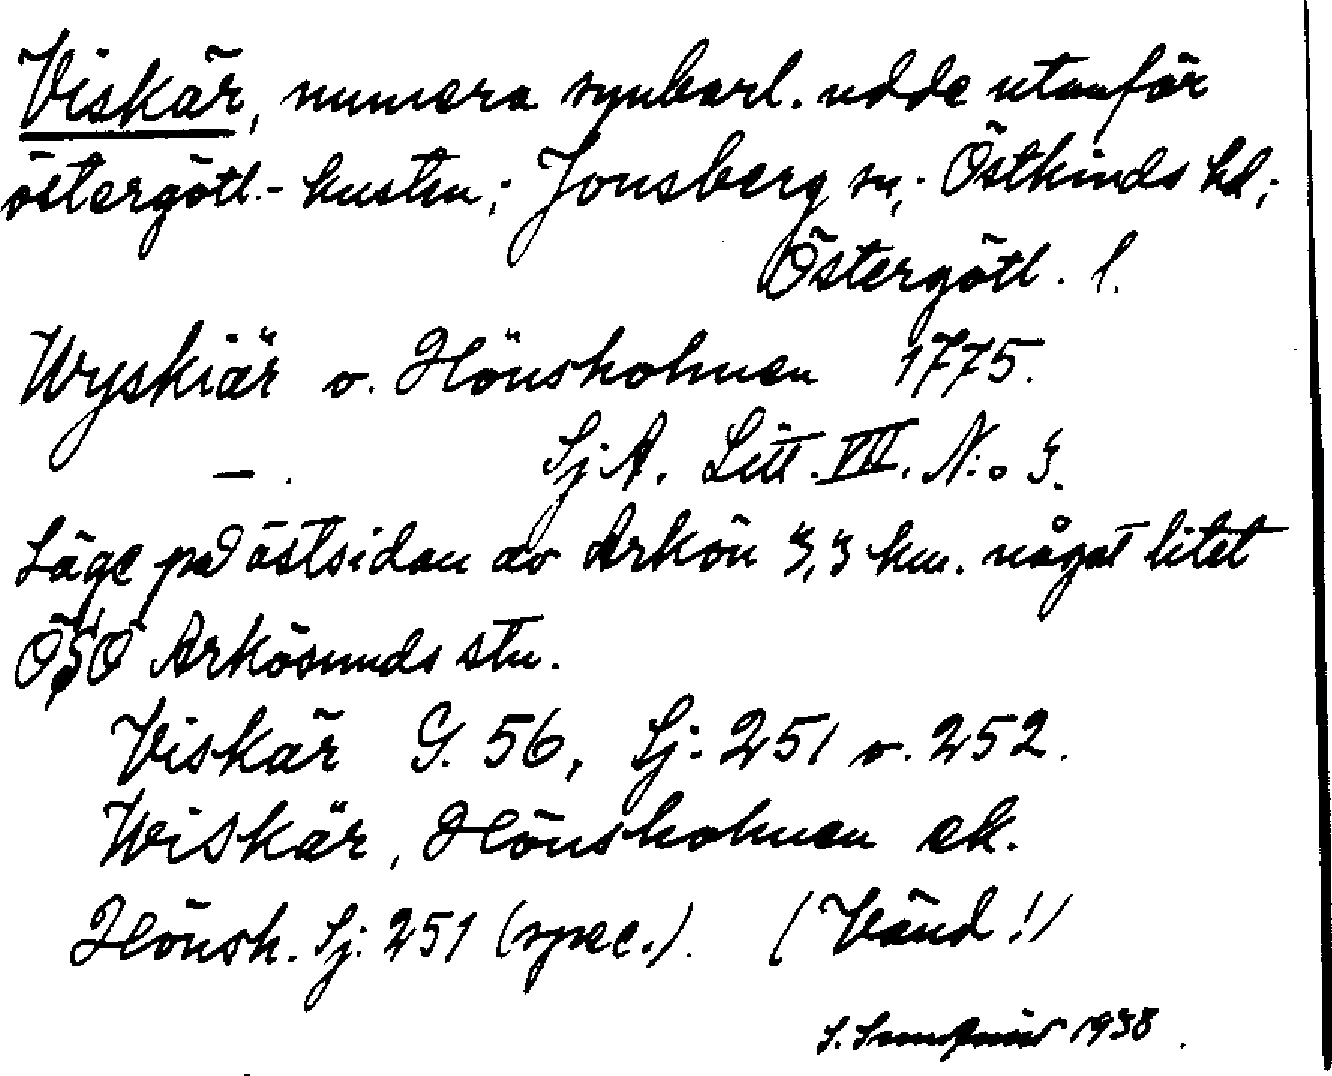 Viskär, numera synbarl. udde utanför
östergötl.- kusten; Jonsberg sn; Östkinds hd;
Östergötl. l.
Wyskiär o. Hönsholmen 1775.
—. Sj.A. Litt. VII. N:o 3.
Läge på östsidan av Arkön 3,3 km. något litet
ÖSÖ Arkösunds stn.
Viskär G. 56, Sj: 251 o. 252.
Wiskär, Hönsholmen ek.
Hönsh. Sj: 251 (spec.). (Vänd!)
S. 1938.